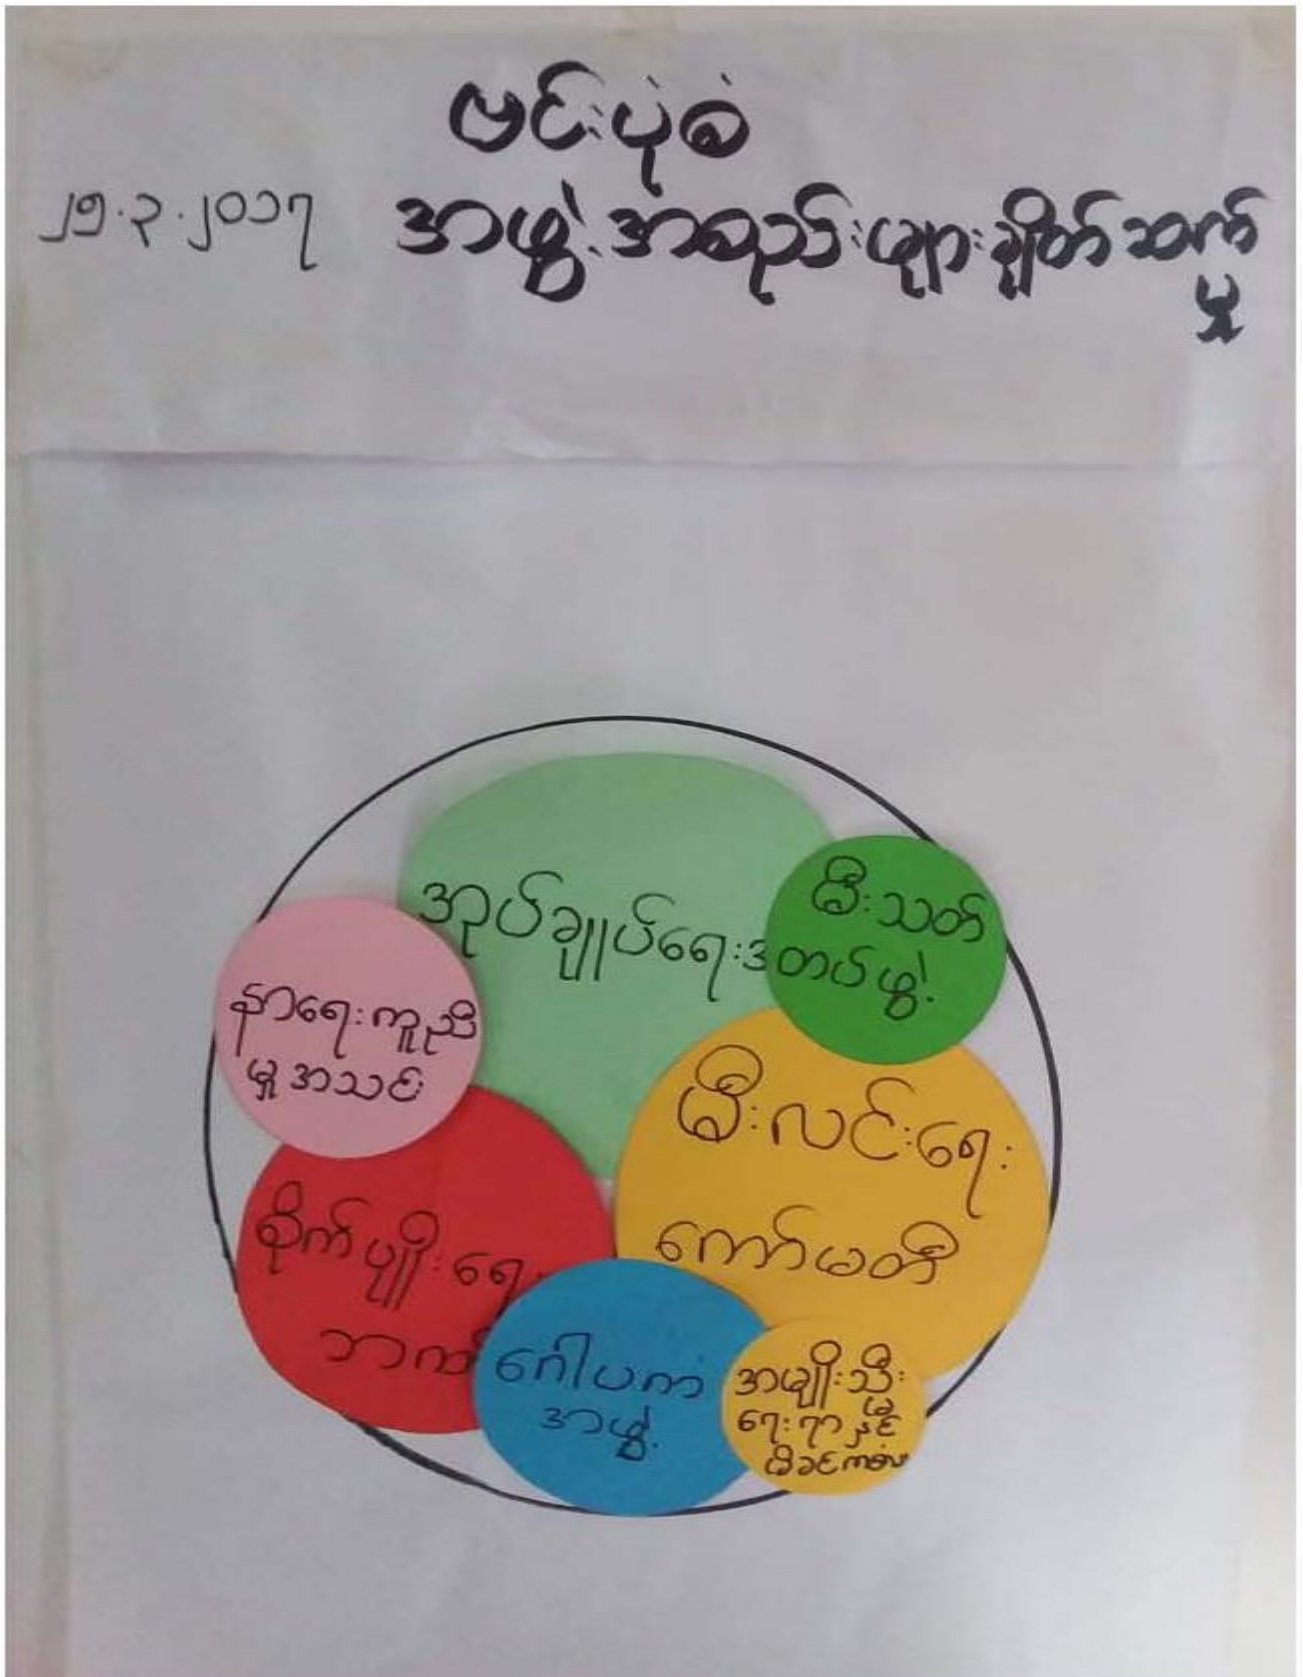 ဗင်းပုံစံ
၂၅.၃.၂၀၁၇ အဖွဲ့အစည်းများချိတ်ဆက်
မှု
အုပ်ချုပ်ရေးအ
မီးသတ်
တပ်ဖွဲ့
နာရေးကူညီ
မှုအသင်း
မီးလင်းရေး
ကော်မတီ
စိုက်ပျိုးရေး
ဘက်
ဂေါပက
အဖွဲ့
အမျိုးသ္မီး
ရေးရာနှင့်
မိခင်ကလေး